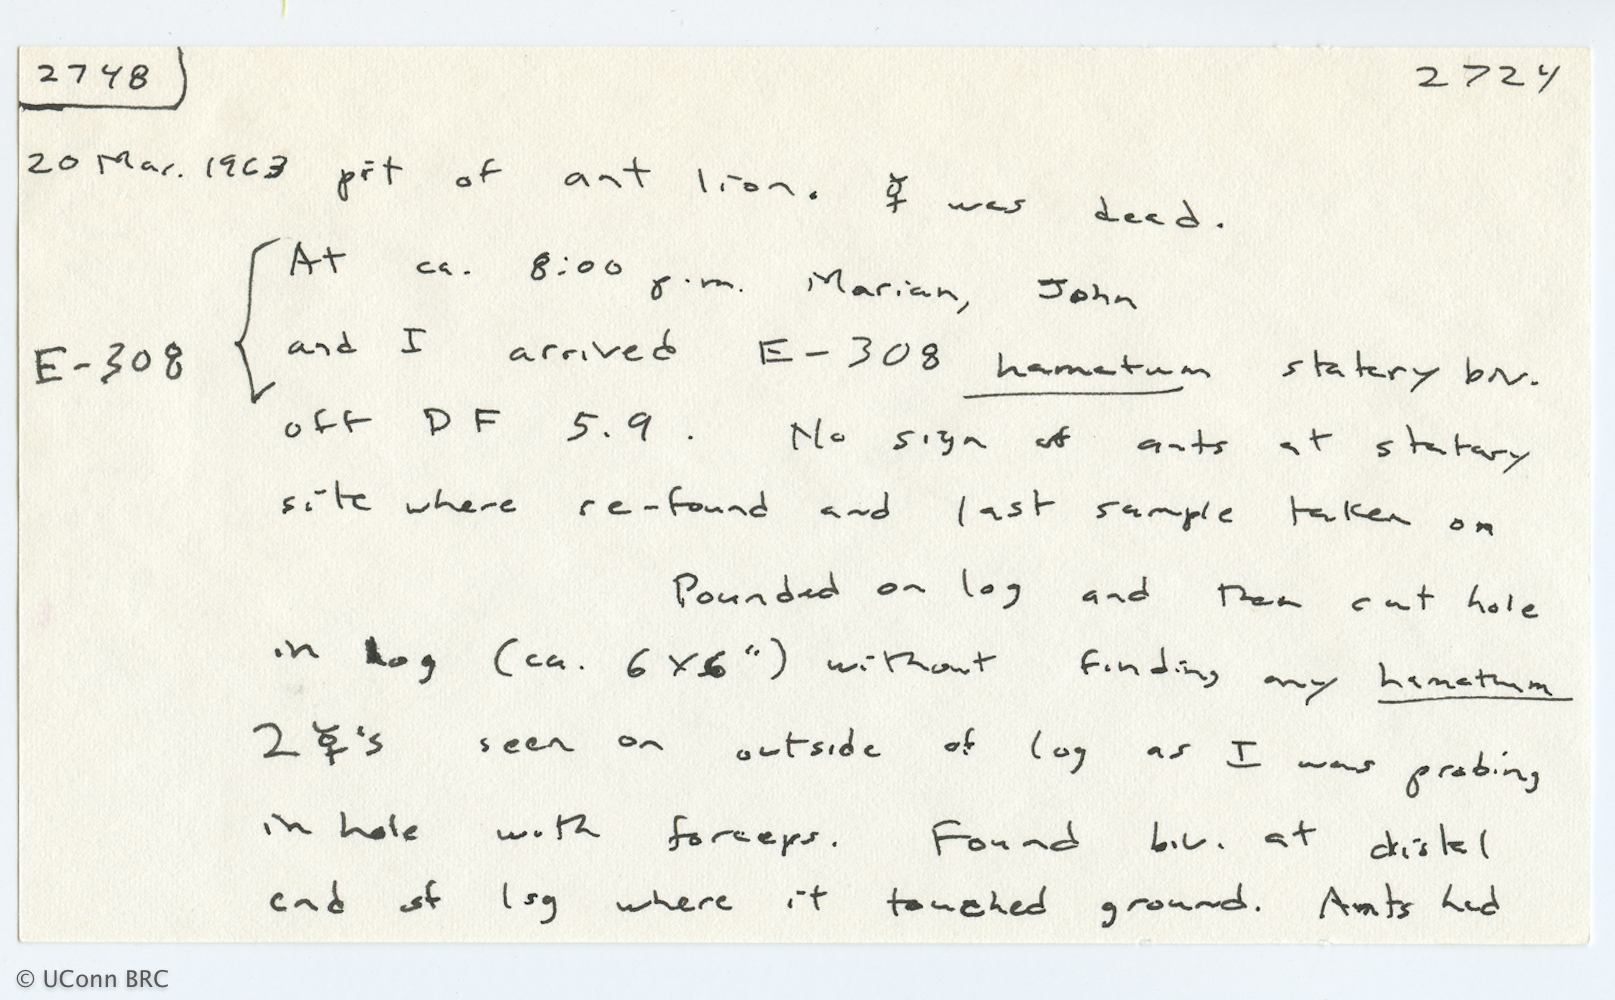 2748
2724
20 Mar. 1963 pit of ant lion. ☿ was dead.
At ca. 8:00 p.m. Marian, John
E-308 and I arrived E-308 hamatum statary biv.
off DF 5.9. No sign of ants at statary
site where re-found and last sample taken on
Pounded on log and then cut hole
in log (ca. 6 x 6") without finding any hamatum
2 ☿'s seen on outside of log as I was probing
in hole with forceps. Found biv. at distal
end of log where it touched ground. Ants had
© UConn BRC